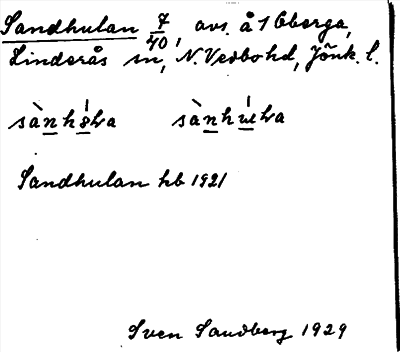 Sandhulan 7/40, avs. å 1 Öberga,
Linderås sn, N. Vedbo hd, Jönk. l.
Sandhulan hb 1921
Sven Sandberg 1929